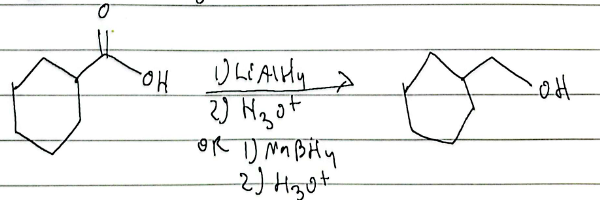 O
OH
1) LiAlH4
2) H3O+
OH
OR 1) NaBH4
2) H3O+